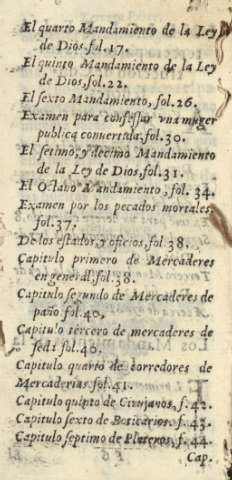 El quarto Mandamiento de la Ley
de Dios.fol.17.
El quinto Mandamiento de la Ley
de Dios, fol.22.
El sexto Mandamiento, fol.26.
Examen para confessar vna muger
publica conuertida.fol.30.
El setimo, y decimo Mandamiento
de la Ley de Dios, fol.31.
El Octauo Mandamiento, fol. 34.
Examen por los pecados mortales.
fol.37.
De los estados, y oficios, fol.38.
Capitulo primero de Mercaderes
en general, fol.38.
Capitulo segundo de Mercaderes de
paño fol.40.
Capitulo tercero de mercaderes de
seda fol.40.
Capitulo quarto de corredores de
Mercaderias. fol.41.
Capitulo quinto de Cirujanos, f.42.
Capitulo sexto de Boticarios, f.43.
Capitulo septimo de Plateros, f.44.
Cap.